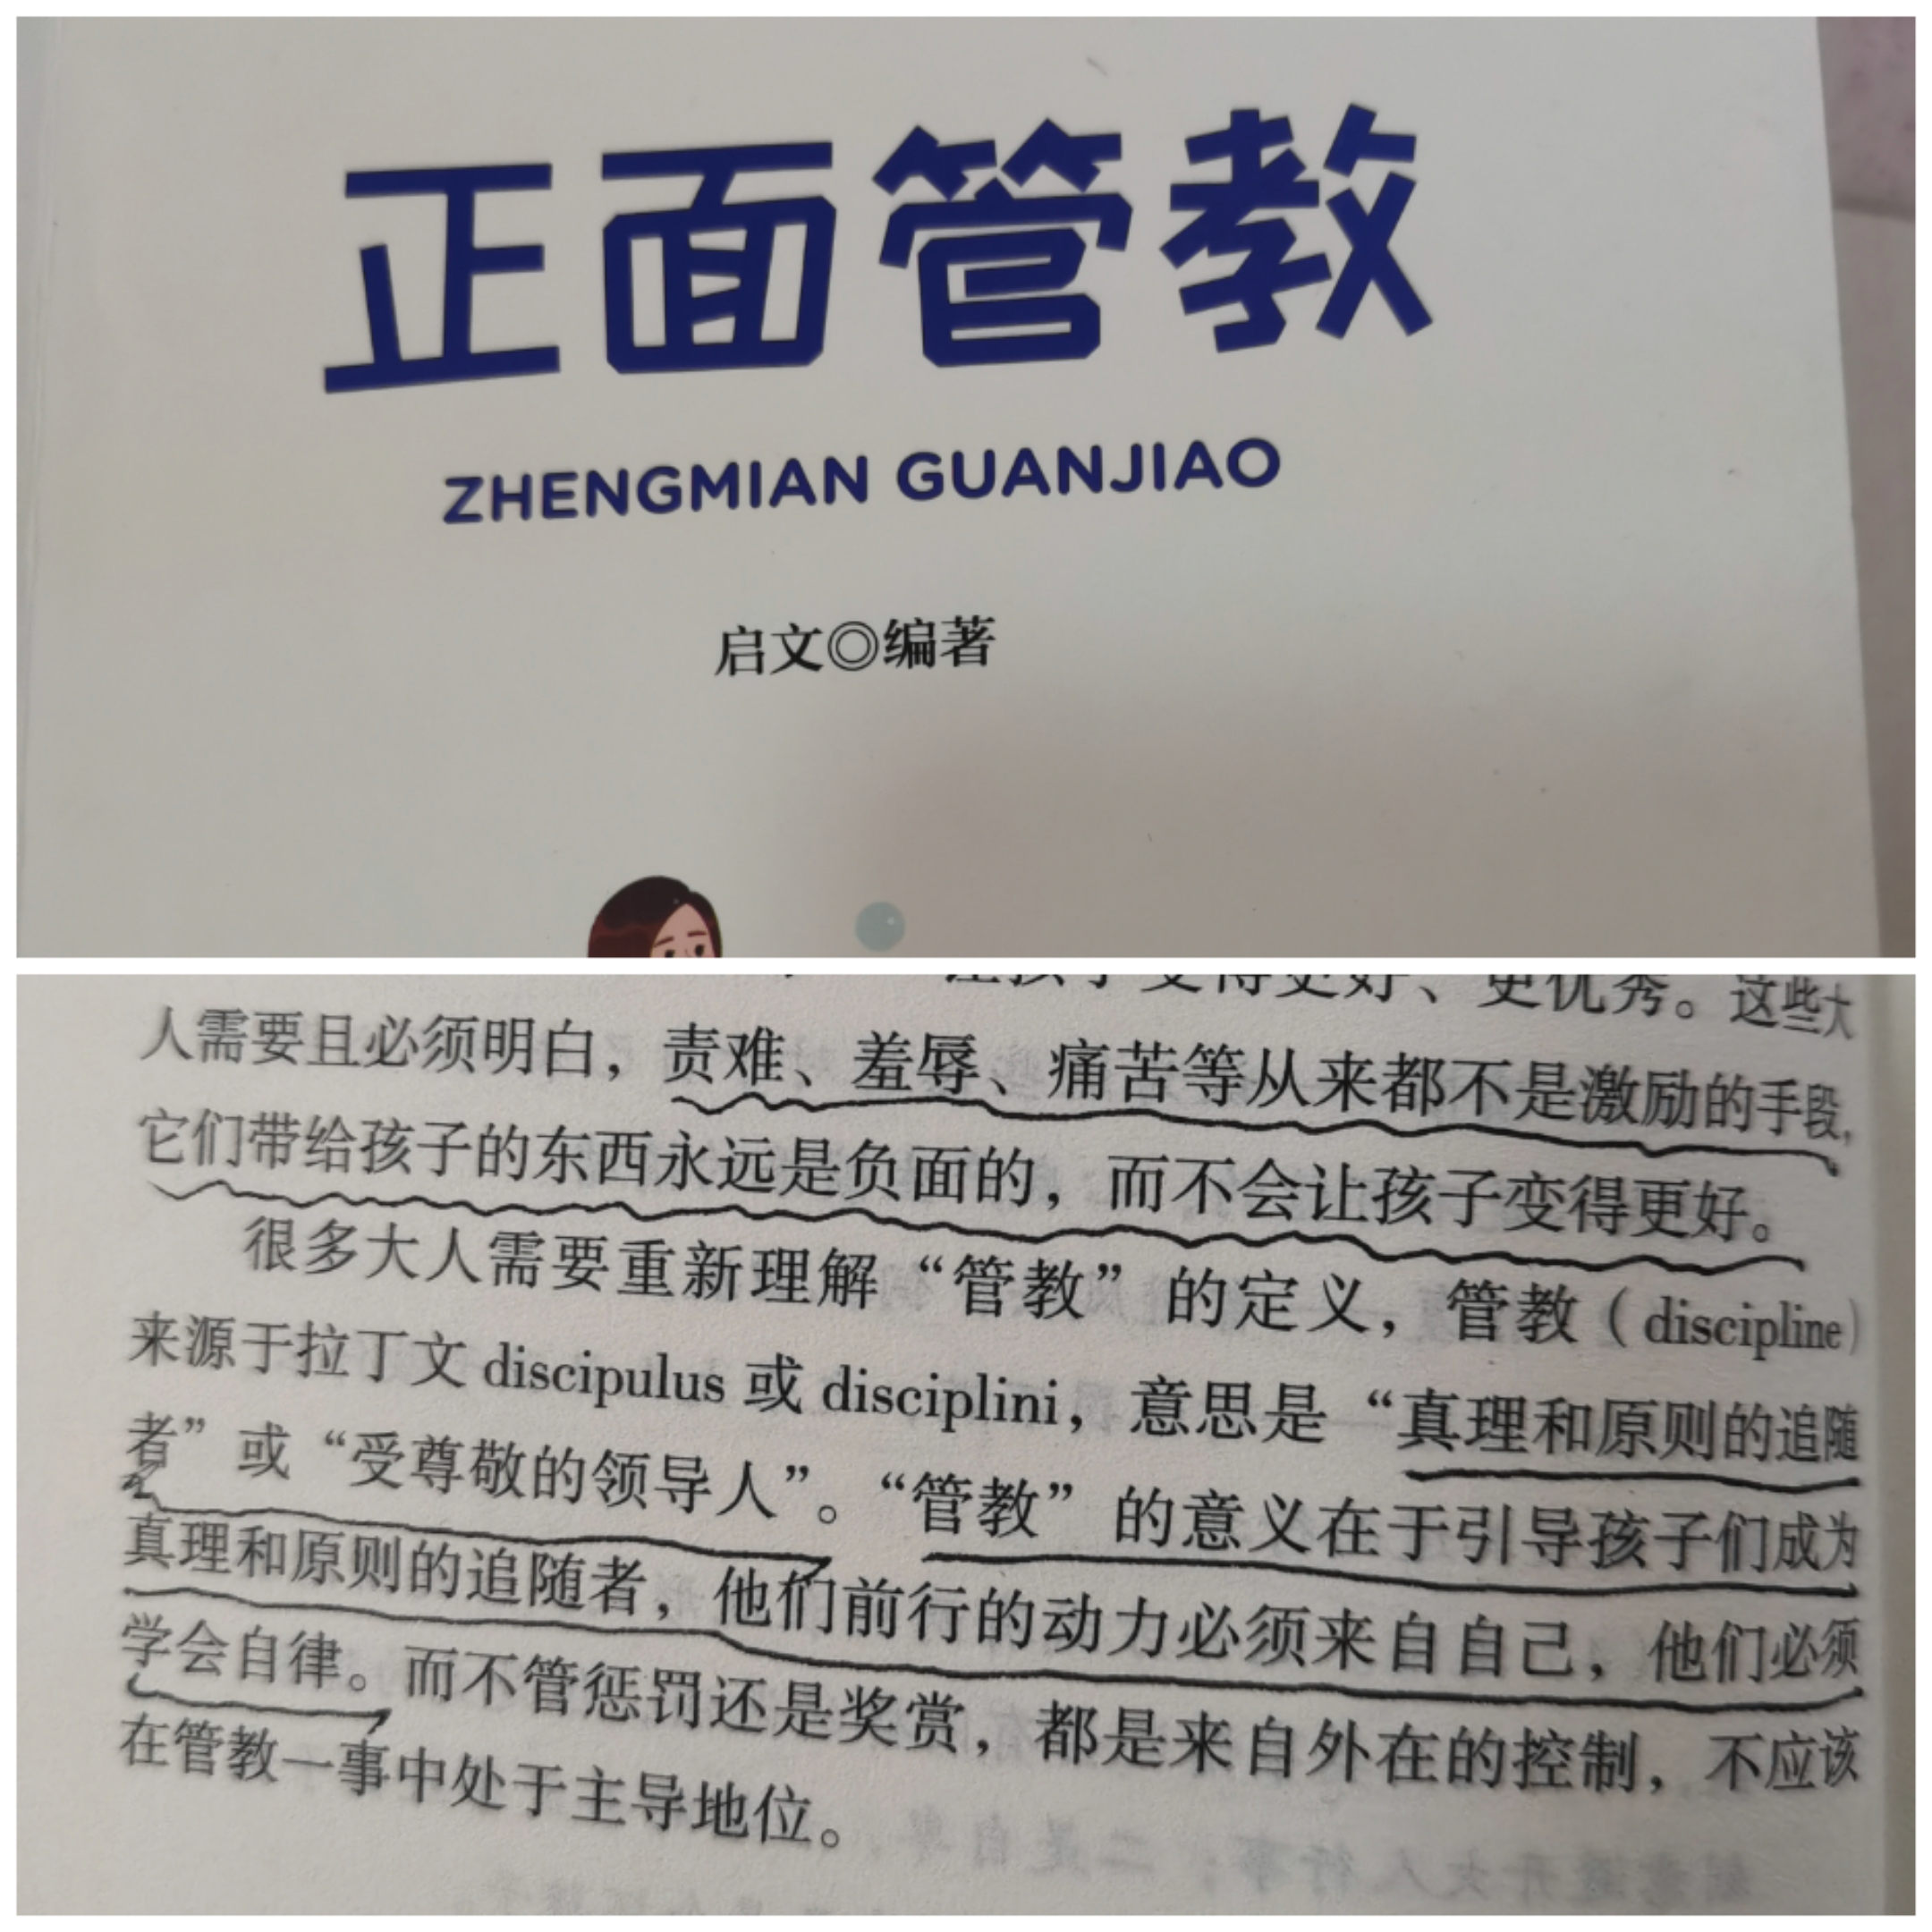 正面管教
ZHENGMIAN GUANJIAO
启文◎编著
让孩子变得更好、更优秀。这些大
人需要且必须明白，责难、羞辱、痛苦等从来都不是激励的手段，
它们带给孩子的东西永远是负面的，而不会让孩子变得更好。
很多大人需要重新理解“管教”的定义，管教（discipline）
来源于拉丁文 discipulus 或 disciplini，意思是“真理和原则的追随
者”或“受尊敬的领导人”。“管教”的意义在于引导孩子们成为
真理和原则的追随者，他们前行的动力必须来自自己，他们必须
学会自律。而不管惩罚还是奖赏，都是来自外在的控制，不应该
在管教一事中处于主导地位。